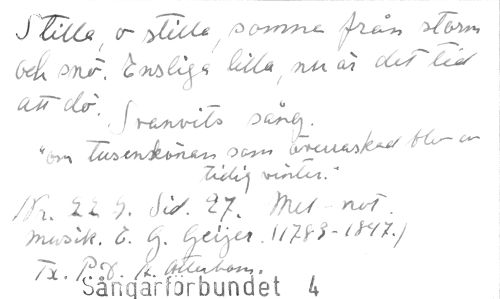 Stilla, o stilla, somna från storm
och snö. Ensliga lilla, nu är det tid
att dö.
Svanvits sång.
"om tusenskönan som överraskad blev av
tidig vinter."
Nr. 22 9. Sid. 27. Met-not.
Musik. E. G. Geijer. (1783-1847.)
Tx. P.D.A. Atterbom.
Sångarförbundet 4